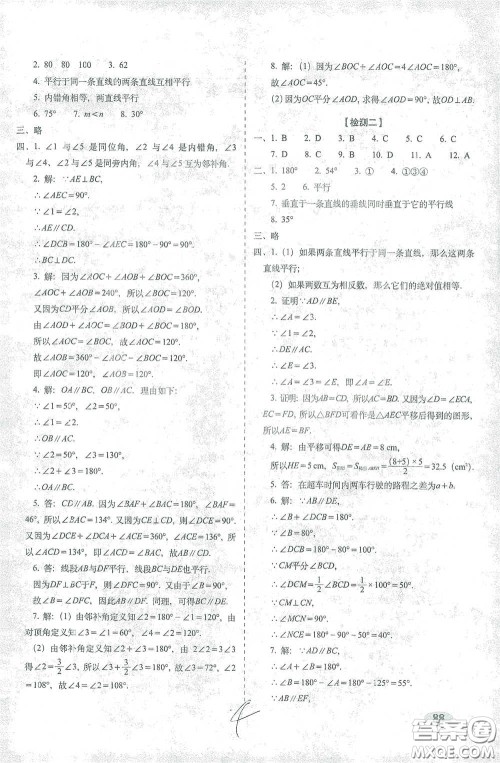 2. 80 80 100 3. 62
4. 平行于同一条直线的两条直线互相平行
5. 内错角相等，两直线平行
6. 75° 7. m<n 8. 30°
三、略
四、1. ∠1 与∠5 是同位角，∠1 与∠2，∠3
与∠4，∠3与∠5是同旁内角，∠4与∠5互为邻补角.
2. 解：∵AE⊥BC，
∴∠AEC=90°.
∵∠1=∠2，
∴AE∥CD.
∴∠DCB=180°-90°=90°.
∴BC⊥DC.
3. 解：因为∠AOC+∠AOD=180°，
∠AOC+∠AOD+∠AOF=300°，所以∠AOF=120°.
因为∠AOC+∠AOF=240°，所以∠AOC=120°.
又因为CD交AB于点O，所以∠AOC=∠BOD.
由∠AOD+∠AOF+∠BOD=180°+120°=300°，
故∠AOF=360°-∠AOC-∠AOF=120°.
故∠AOC=120°，∠AOF=120°.
4. 解：OA∥BC，OB∥AC. 理由如下：
∵∠1=50°，∠2=50°，
∴∠1=∠2.
∴OB∥AC.
∵∠2=50°，∠3=130°，
∴∠2+∠3=180°.
∴OA∥BC.
5. 答：CD∥AB. 因为∠BAF+∠BAC=180°，∠BAF=
46°，所以∠BAC=134°. 又因为CE⊥DC，所以∠DCE=90°.
又因为∠DCE+∠ACE+∠DCA=360°，∠ACE=136°，
所以∠DCA=134°. 所以∠BAC=∠DCA. 所以CD∥AB.
6. 答：线段AB与DF平行，线段BC与DE平行.
因为DF⊥GF于F，所以∠DFC=90°. 又由于∠B=
90°，所以∠DFC=∠B. 因此AB∥DF. 同理，可得BC∥DE.
7. 解：(1) 由邻补角定义知∠2=180°-∠1=120°，由
对顶角定义知∠3=∠1=60°，∠4=∠2=120°.
(2) 由邻补角定义知∠2+∠3=180°，因为2∠3=3∠1，
∠3=3/2∠1 所以∠1+3/2∠1=180°. 故∠3=∠1=72°，∠4=
∠2=108°. 所以∠1=∠3=72°，∠2=∠4=108°.
8. 解：(1) 因为∠BOC+∠AOC=4∠AOC=180°，
所以∠AOC=45°.
(2)因为OC平分∠AOD，求得∠AOD=90°，故OD⊥AB.
【检测二】
一、1. B 2. D 3. D 4. B 5. C 6. C
7. B 8. B 9. C 10. C 11. A 12. A
二、1. 180° 2. 54° 3. ① 4. ①③④
5. 2 6. 平行
7. 垂直于一条直线的直线同时垂直于它的平行线
8. 35°
三、略
四、1. (1) 如果两条直线平行于同一条直线，那么这两条
直线平行；
(2) 如果两数互为相反数，那么它们的绝对值相等.
2. 证明∵AD∥BE，
∴∠A=∠3.
∵∠1=∠2，
∴DE∥AC.
∴∠E=∠3.
∴∠A=∠E.
3. 证明：因为AB=CD，所以AC=BD. 又因为∠DCV=∠ECA，
EC=FD，所以△BFD可以看作是△AEC平移后得到的图形，
所以AE=BF.
4. 解：由平移可得DE=AE=8 cm，
所以HE=5 cm，S阴影=S梯形ABEH=(8+5)×5/2=32.5 (cm²).
5. 答：在超车时间内两车行驶的路程之差为a+b.
6. 解：∵AB∥DE，
∴∠B+∠DCB=180°.
∵∠B=80°，
∴∠DCB=180°-80°=100°.
∵CM平分∠DCB，
∴∠DCM=1/2∠BCD=1/2×100°=50°.
∵CM⊥CN，
∴∠MCN=90°.
∴∠NCE=180°-90°-50°=40°.
7. 解：∵AD∥BC，
∴∠A+∠B=180°.
∵∠A=90°，
∴∠B=180°-∠A=90°.
∵AB∥EF，
4
88
答案圈
MXQE.COM